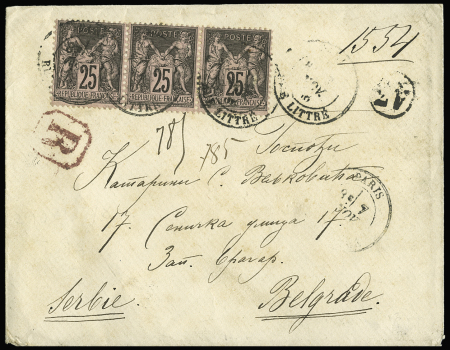 1554
POSTE POSTE POSTE
25 25 25
REPUBLIQUE FRANCAISE
LITTRÉ
R
785 785
Госпођи
Катарини С. Вељковића
17. Сеничка улица 17.
Зап. Врачар.
PARIS
Serbie
Belgrade.